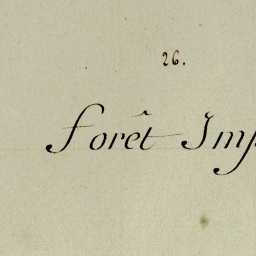 26.
Forêt Imp